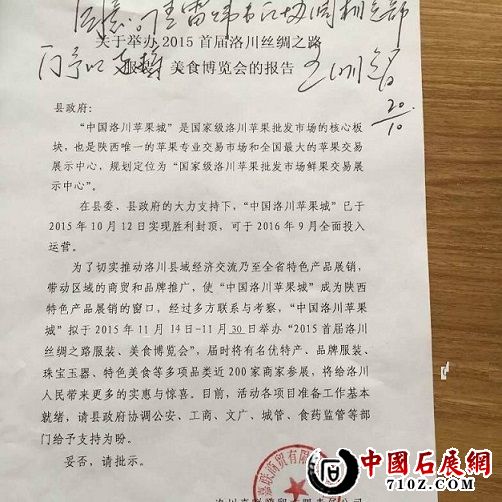 关于举办 2015 首届洛川丝绸之路
服装、美食博览会的报告
20/10
县政府:
“中国洛川苹果城”是国家级洛川苹果批发市场的核心板
块,也是陕西唯一的苹果专业交易市场和全国最大的苹果交易
展示中心,规划定位为“国家级洛川苹果批发市场鲜果交易展
示中心”。
在县委、县政府的大力支持下,“中国洛川苹果城”已于
2015 年 10 月 12 日实现胜利封顶,可于 2016 年 9 月全面投入
运营。
为了切实推动洛川县域经济交流乃至全省特色产品展销,
带动区域的商贸和品牌推广,使“中国洛川苹果城”成为陕西
特色产品展销的窗口,经过多方联系与考察,“中国洛川苹果
城”拟于 2015 年 11 月 14 日-11 月 30 日举办“2015 首届洛川
丝绸之路服装、美食博览会”,届时将有名优特产、品牌服装、
珠宝玉器、特色美食等多项品类近 200 家商家参展,将给洛川
人民带来更多的实惠与惊喜。目前,活动各项目准备工作基本
就绪,请县政府协调公安、工商、文广、城管、食药监管等部
门给予支持为盼。
妥否,请批示。
商贸有限
中國石展網
7102.COM